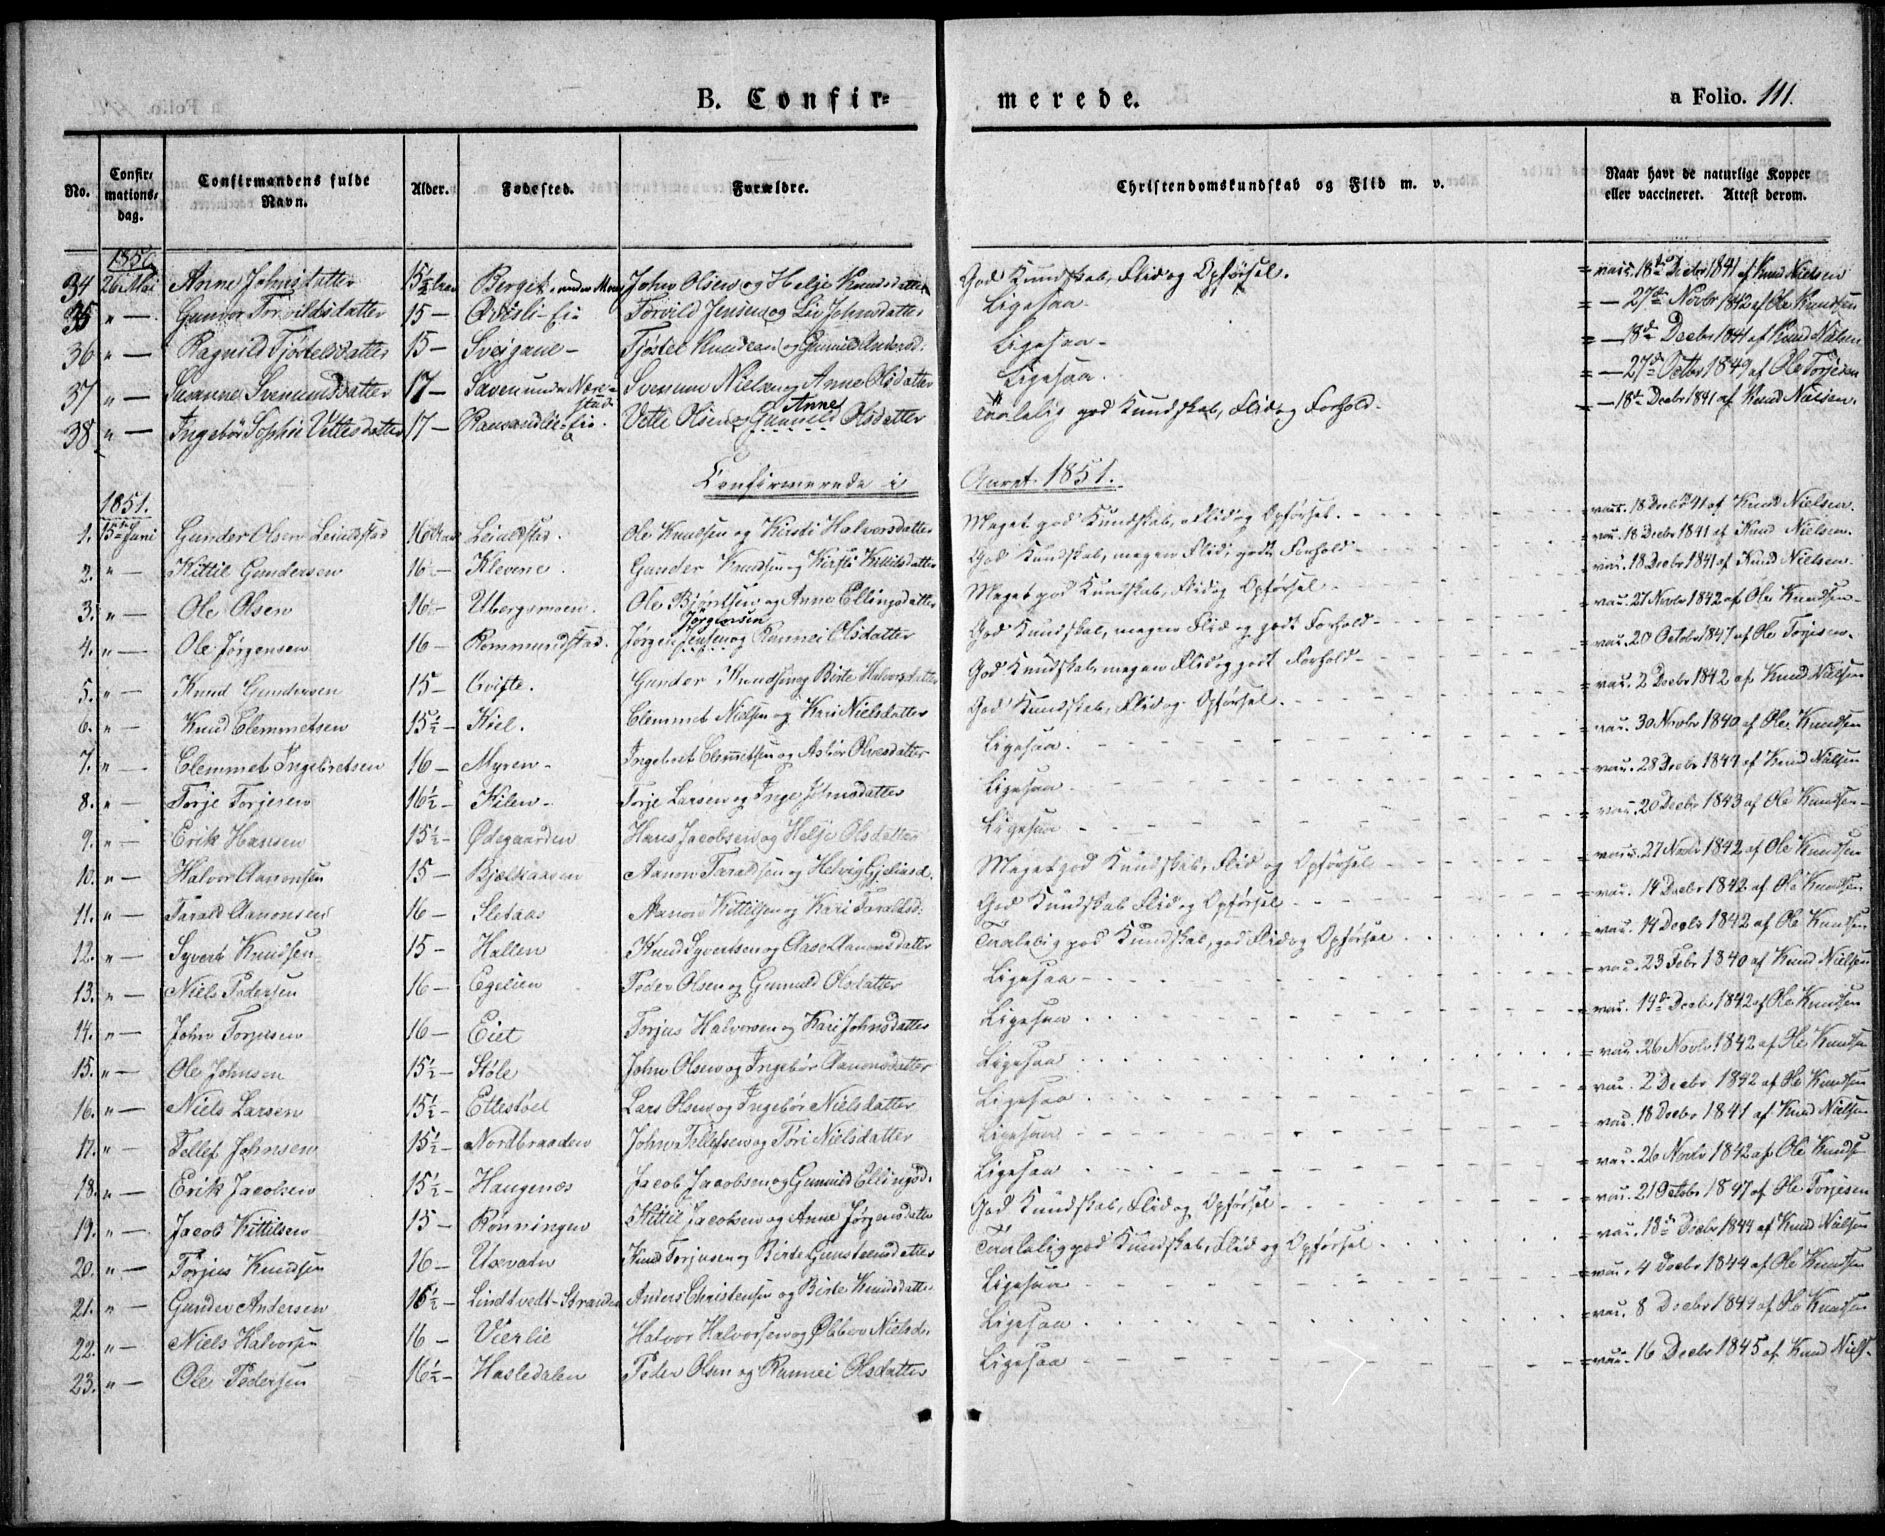 B. Confir= merede. a Folio. 111.
No. Confir= mations= dag. Confirmandens fulde Navn. Alder. Fødested. Forældre. Christendomskundskab og Flid m. v. Naar havt de naturlige Kopper eller vaccineret. Attest derom.
1850
34 26 Mai Anne Johnsdatter 15½ Berget under John Olsen og Helje Knudsdatter God Kundskab, Flid og Opførsel. = vacc. 18de Decbr 1841 af Knud Nielsen
35 " — Gunvor Torvildsdatter 15 — Torvild Jensen og Liv Johnsdatter Ligesaa = — 27de Novbr 1842 af Ole Knudsen
36 " — Ragnild Tjøstelsdatter 15 — Sveigane — Tjøstel Knudsen og Gunuld Andersd: Ligesaa — = — 18de Decbr 1841 af Knud Nielsen
37 " — Susanne Svenumdsdatter 17 — Saven under Svenum Nielsen og Anne Olsdatter Ligesaa. = — 27de Octbr 1849 af Ole Torjesen
38 " — Ingebør Sophie Vettesdatter 17 — Vette Olsen og Gunuld Anne Olsdatter Taalelig god Kundskab, Flid og Forhold. — 18de Decbr 1841 af Knud Nielsen.
Confirmerede i Aaret 1851.
1851.
1. 15de Juni Gunder Olsen Leiulstad 16 Aar Leiulstad. Ole Knudsen og Kirsti Halvorsdatter Meget god Kundskab, Flid og Opførsel. = vac. 18 Decbr 41 af Knud Nielsen
2. " — Kittil Gundersen 16 — Klevene. Gunder Knudsen og Kirsti Knudsdatter God Kundskab, megen Flid, godt Forhold — = vac. 18 Decbr 1841 af Knud Nielsen.
3. " — Ole Olsen 16 — Ubergsmoen. Ole Bjørntsen og Anne Ellingsdatter Meget god Kundskab, Flid og Opførsel — = vac. 18 Decbr 1841 af Knud Nielsen.
4. " — Ole Jørgensen 16 — Rommundstad. Jørgen Jensen Jørgensen og Rannei Olsdatter God Kundskab, megen Flid og godt Forhold — = vac. 27 Novbr 1842 af Ole Knudsen —
5. " — Knud Gundersen 15 — Qviste. Gunder Knudsen og Birte Halvorsdatter God Kundskab, megen Flid og godt Forhold — = vac. 20 Octobr 1847 af Ole Torjesen.
6. " — Knud Clemmetsen 15½ — Kiel. Clemmet Nielsen og Kari Nielsdatter God Kundskab, Flid og Opførsel. = vac. 2 Decbr 1842 af Knud Nielsen
7. " — Clemmet Ingebretsen 16 — Myren — Ingebret Clemmetsen og Asbør Olvesdatter Ligesaa. = vac. 30 Novbr 1840 af Ole Knudsen
8. " — Torje Torjesen 16½ — Kilen — Torje Larsen og Inge Johnsdatter Ligesaa — = vac. 28 Decbr 1841 af Knud Nielsen
9. " — Erik Hansen 15½ — Ødegaarden Hans Jacobsen og Helje Olsdatter Ligesaa — = vac. 20 Decbr 1843 af Ole Knudsen —
10. " — Halvor Aanonsen 15 — Bjelkaasen Aanon Taraldsen og Helvig Meget god Kundskab, Flid og Opførsel — = vac. 27 Novbr 1842 af Ole Knudsen
11. " — Tarald Aanonsen 16 — Sletaas Aanon Kittilsen og Kari Taraldsd: God Kundskab Flid og Opførsel — = vac. 14 Decbr 1842 af Ole Knudsen
12. " — Syvert Knudsen 15 — Hallen Knud Syvertsen og Aase Aanonsdatter Taalelig god Kundskab, god Flid og Opførsel = vac. 14 Decbr 1842 af Ole Knudsen
13. " — Niels Pedersen 16 — Egelien Peder Olsen og Gunuld Olsdatter Ligesaa — = vac. 23 Febr 1840 af Knud Nielsen
14. " — John Torjusen 16 — Eiet Torjus Halvorsen og Kari Johnsdatter Ligesaa = vac. 14de Decbr 1842 af Ole Knudsen
15. " — Ole Johnsen 15½ — Støle John Olsen og Ingebør Aanonsdatter Ligesaa = vac. 26 Novbr 1842 af Ole Knudsen
16. " — Niels Larsen 15½ — Ettestøel Lars Olsen og Ingebør Nielsdatter Ligesaa = vac. 2 Decbr 1842 af Ole Knudsen
17. " — Tellef Johnsen 15½ — Nordbraaden John Tellefsen og Tøri Nielsdatter Ligesaa = vac. 18 Decbr 1841 af Knud Nielsen
18. " — Erik Jacobsen 15½ — Haugenæs Jacob Jacobsen og Gunuld Ellingsd. Ligesaa = vac. 26 Novbr 1842 af Ole Knuds
19. " — Jacob Kittilsen 15 — Rønningen Kittil Jacobsen og Anne Jørgensdatter God Kundskab, Flid og Opførsel — = vac. 21 Octobr 1847 af Ole Torjesen
20. " — Torjus Knudsen 16 — Uxevatn Knud Torjusen og Birte Gunsteensdatter Taalelig god Kundskab, Flid og Opførsel = vac. 18de Decbr 1844 af Knud Nielsen
21. " — Gunder Andersen 15½ — Lindtvedt-Stranden Anders Christensen og Birte Knudsdatter Ligesaa = vac. 4 Decbr 1844 af Ole Knudsen
22. " — Niels Halvorsen 16 — Vierlie Halvor Halvorsen og Ølber Nielsd: Ligesaa = vac. 8 Decbr 1844 af Ole Knudsen
23. " — Ole Pedersen 16½ — Hasledalen Peder Olsen og Rannei Olsdatter Ligesaa = vac. 16 Decbr 1845 af Knud Niels.